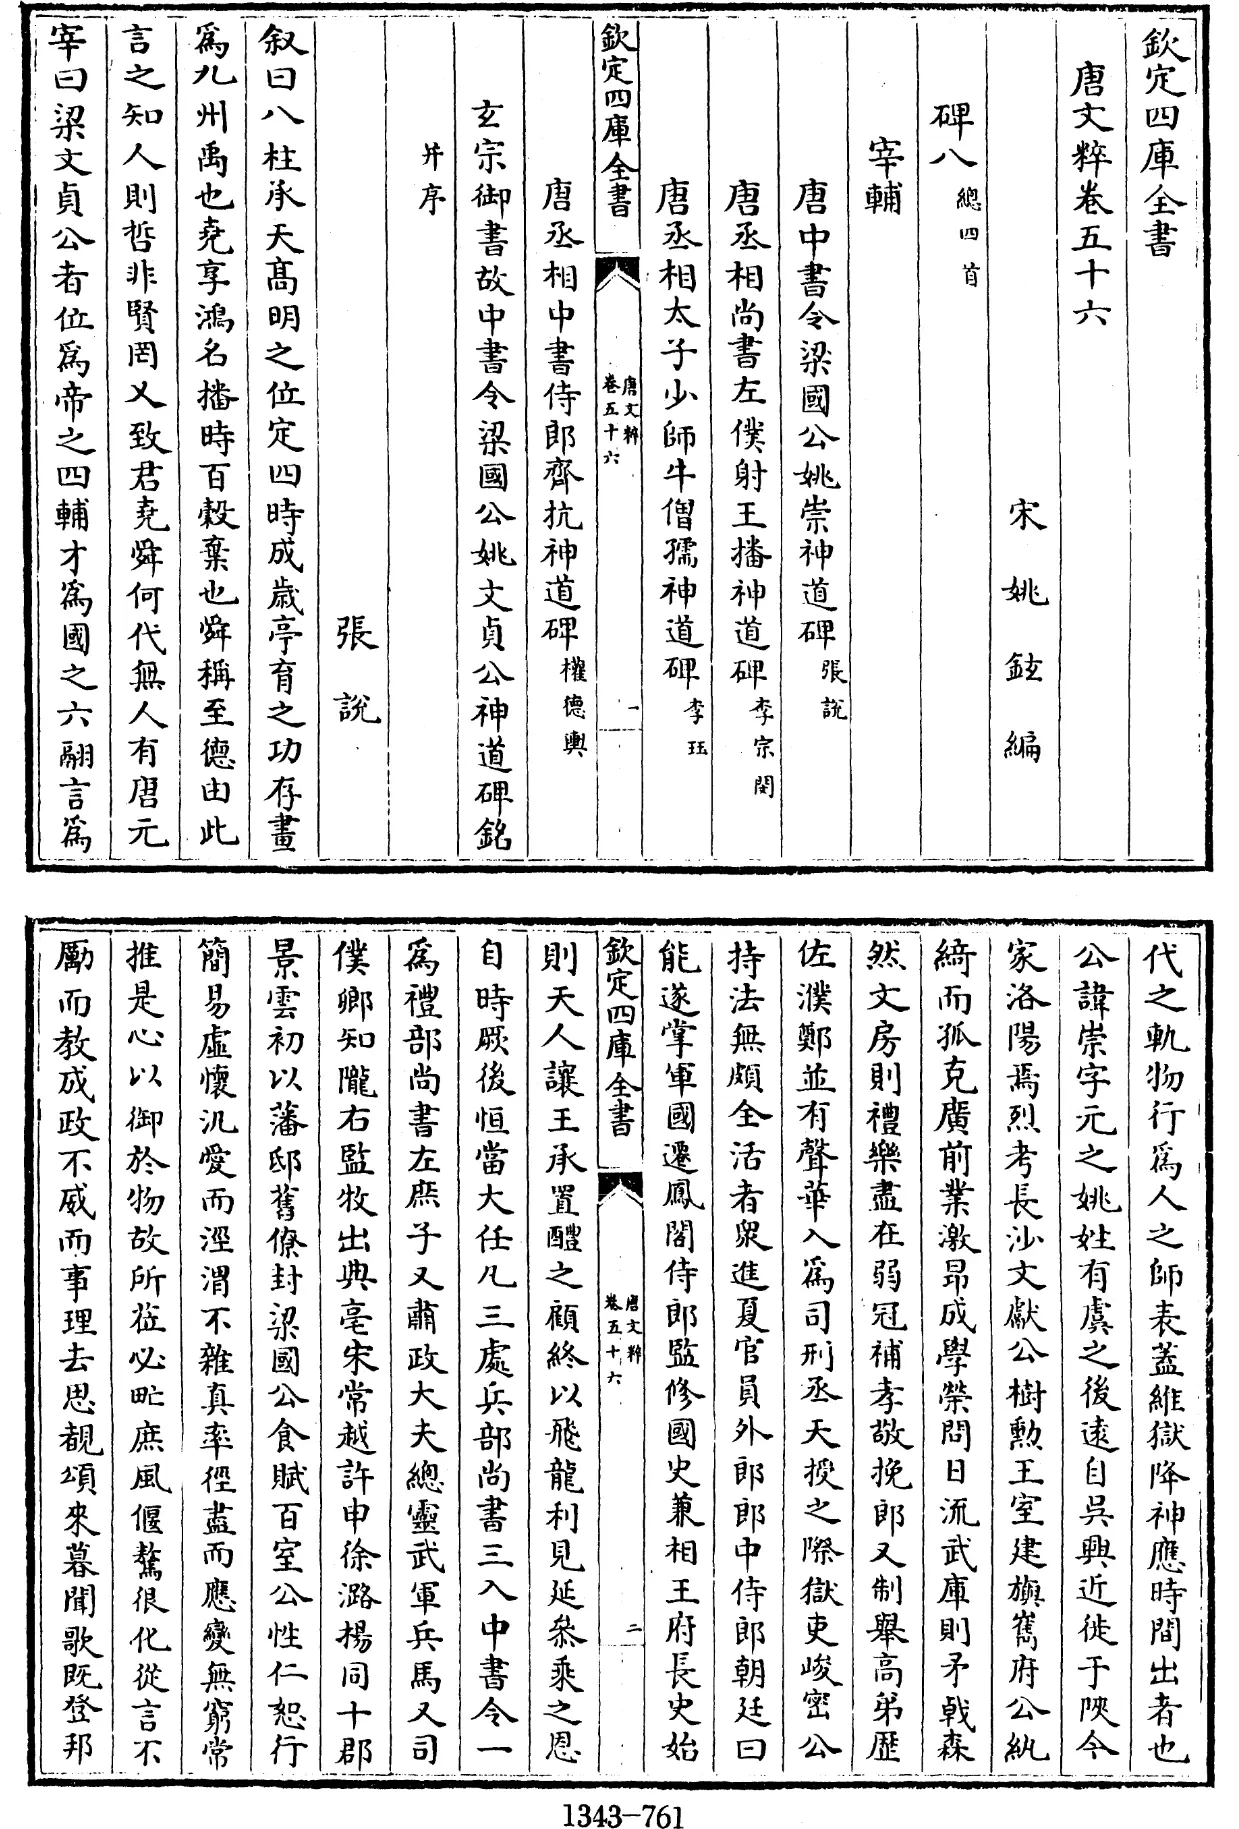 欽定四庫全書
唐文粹卷五十六
宋姚鉉編
碑八總四首
宰輔
唐中書令梁國公姚崇神道碑張說
唐丞相尚書左僕射王播神道碑李宗閔
唐丞相太子少師牛僧孺神道碑李珏
欽定四庫全書
唐文粹
卷五十六
一
唐丞相中書侍郎齊抗神道碑權德輿
玄宗御書故中書令梁國公姚文貞公神道碑銘
并序
張說
叙曰八柱承天高明之位定四時成歲亭育之功存畫
為九州禹也堯享鴻名播時百穀棄也舜稱至德由此
言之知人則哲非賢罔乂致君堯舜何代無人有唐元
宰曰梁文貞公者位為帝之四輔才為國之六翮言為
代之軌物行為人之師表蓋維嶽降神應時間出者也
公諱崇字元之姚姓有虞之後逺自吳興近徙于陝今
家洛陽焉烈考長沙文獻公樹勲王室建旟巂府公紈
綺而孤克廣前業激昂成學榮問日流武庫則矛戟森
然文房則禮樂盡在弱冠補孝敬挽郎又制舉高第歴
佐濮鄭並有聲華入為司刑丞天授之際獄吏峻密公
持法無頗全活者衆進夏官員外郎郎中侍郎朝廷曰
能遂掌軍國遷鳳閣侍郎監修國史兼相王府長史始
欽定四庫全書
唐文粹
卷五十六
二
則天人讓王承置醴之顧終以飛龍利見延叅乘之恩
自時厥後恒當大任凡三處兵部尚書三入中書令一
為禮部尚書左庶子又肅政大夫總靈武軍兵馬又司
僕鄉知隴右監牧出典亳宋常越許申徐潞揚同十郡
景雲初以藩邸舊僚封梁國公食賦百室公性仁恕行
簡易虛懷汎愛而涇渭不雜真率徑盡而應變無窮常
推是心以御於物故所莅必畏庶風偃驁很化從言不
厲而教成政不威而事理去思覩頌來暮聞歌既登邦
1343-761